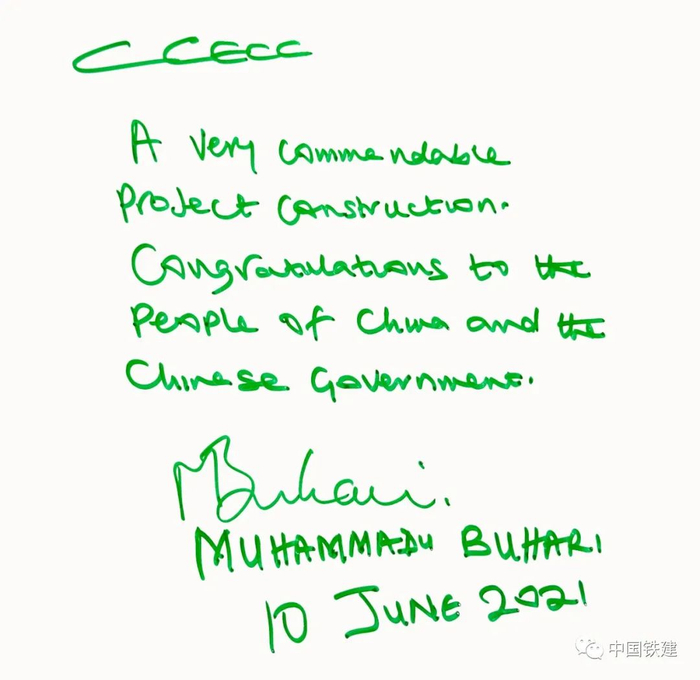 CCECC
A very commendable
Project construction.
Congratulations to the
People of China and the
Chinese Government.
MBuhari.
MUHAMMADU BUHARI
10 JUNE 2021
中国铁建